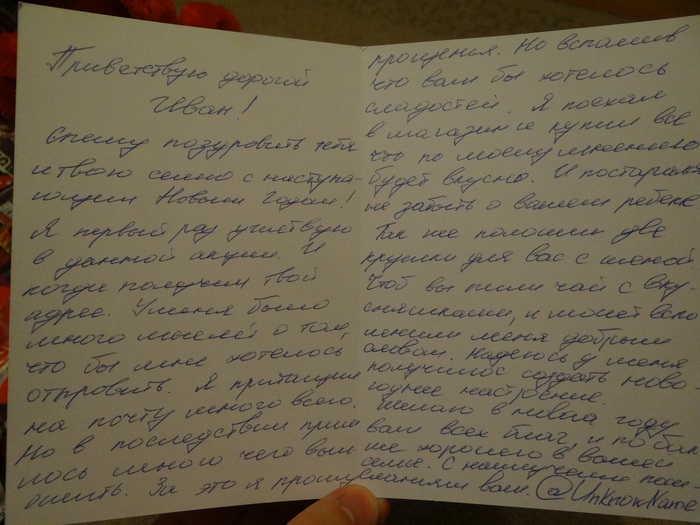 Приветствую дорогой
Иван!
Спешу поздровить тебя
и твою семю с наступа-
ющим Новым Годом!
Я первый раз участвую
в данной акции. И
когда получил твой
адрес. У меня было
много мыслей о том,
что бы мне хотелось
отпровить. Я притащил
на почту много всего.
Но в последствии приш
лось много чего выл
ожить. За это я прошу
прощенья. Но вспомнив
что вам бы хотелось
сладостей. Я поехал
в магазин и купил всё
что по моему мнению
будет вкусно. И постарался
не забыть о вашем ребенке
Так же положил две
кружки для вас с женой
Чтоб вы пили чай с вку-
сняшками, и может вспо
менили меня добрым
словом. Надеюсь у меня
получилос создать ново
годнее настроение.
Желаю в новом году
вам всех благ, и по бол
ше хорошего в вашей
семье. С наилучшими поже-
ланиями вам. @UnknowName